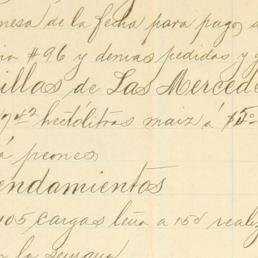 mesa de la fecha para pago, d
#96 y demas pedidos y g
illas, de Las Mercede
742 hectólitros maiz á $5
á peones
endamientos
105 cargas leña a 15
la semana